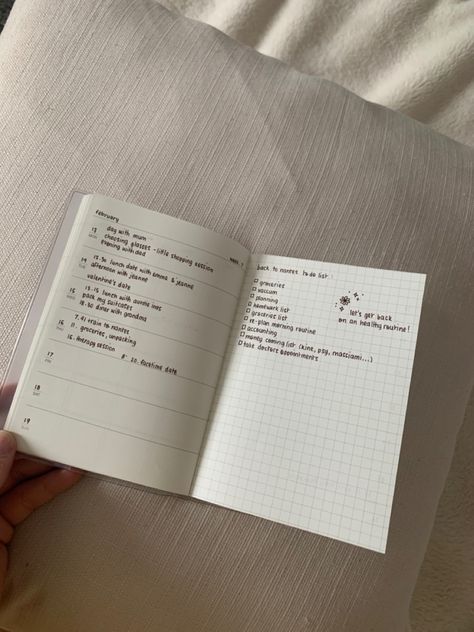 february
WEEK 7
13 MON
day with mum
choosing glasses - little shopping session
evening with dad
14 TUE
12.30 lunch date with emma & jeanne
afternoon with jeanne
valentine's date
15 WED
12.15 lunch with auntie ines
pack my suitcases
18.30 diner with grandma
16 THU
7.41 train to nantes
11. groceries, unpacking
16. therapy session
8. 30. facetime date
17 FRI
18 SAT
19 SUN
back to nantes to do list :
groceries
vacuum
planning
homework list
groceries list
re-plan morning routine
accounting
money coming list (kine, psy, massiami...)
take doctors appointments
let's get back
on an healthy routine!